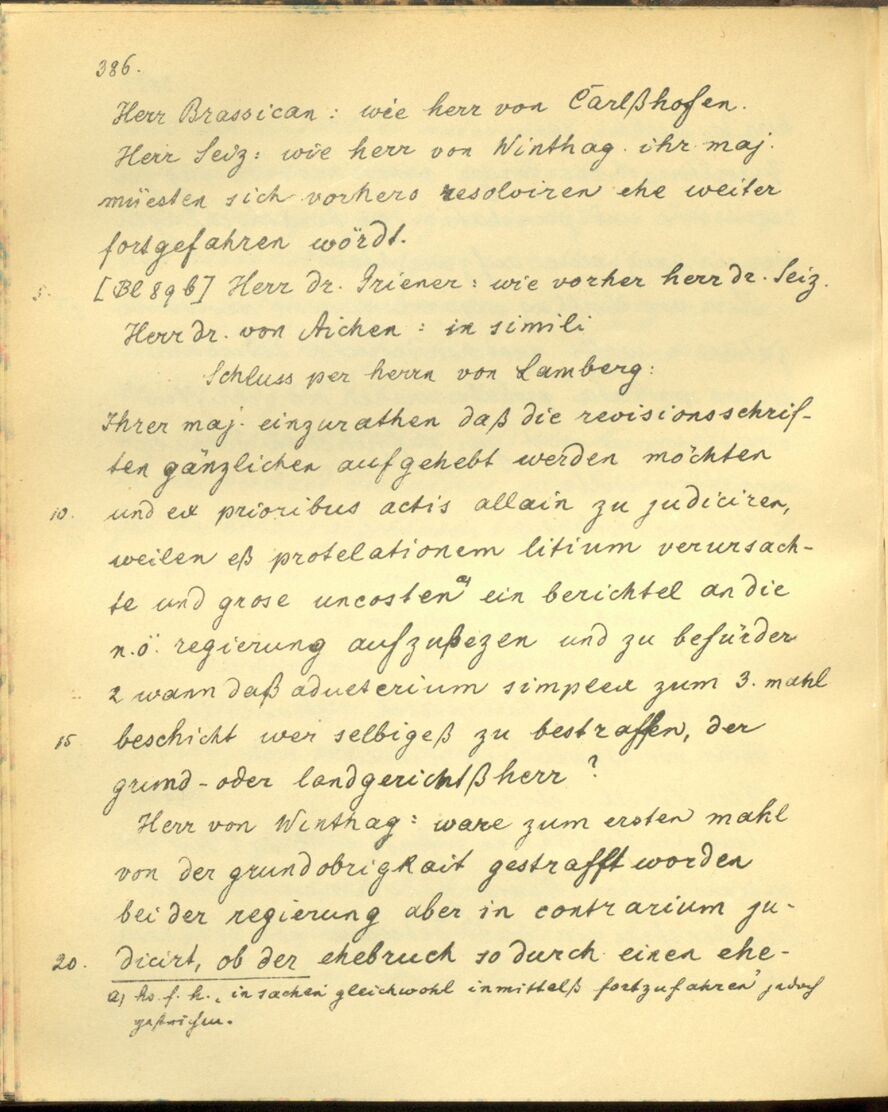 386.
Herr Brassican: wie herr von Carlßhofen.
Herr Seiz: wie herr von Winthag. ihr maj.
müesten sich vorhero resolviren ehe weiter
fortgefahren wördt.
5. [Bl 89 b] Herr dr. Griener: wie vorher herr dr. Seiz.
Herr dr. von Aichen: in simili
Schluss per herrn von Lamberg:
Ihrer maj. einzurathen daß die revisionsschrif-
ten gänzlichen aufgehebt werden möchten
10. und ex prioribus actis allain zu judiciren,
weilen eß protelationem litium verursach-
te und grose uncosten a) ein berichtel an die
n.ö. regierung aufzusezen und zu befürder
2 wann daß adueterium simplex zum 3. mahl
15 beschicht wer selbigeß zu bestraffen, der
grund- oder landgerichtßherr?
Herr von Winthag: ware zum ersten mahl
von der grundobrigkait gestrafft worden
bei der regierung aber in contrarium ju-
20. dicirt, ob der ehebruch so durch einen ehe-
a) hs. f. h. „in sachen gleichwohl inmittelß fortzufahren" jedoch
gestrichen.